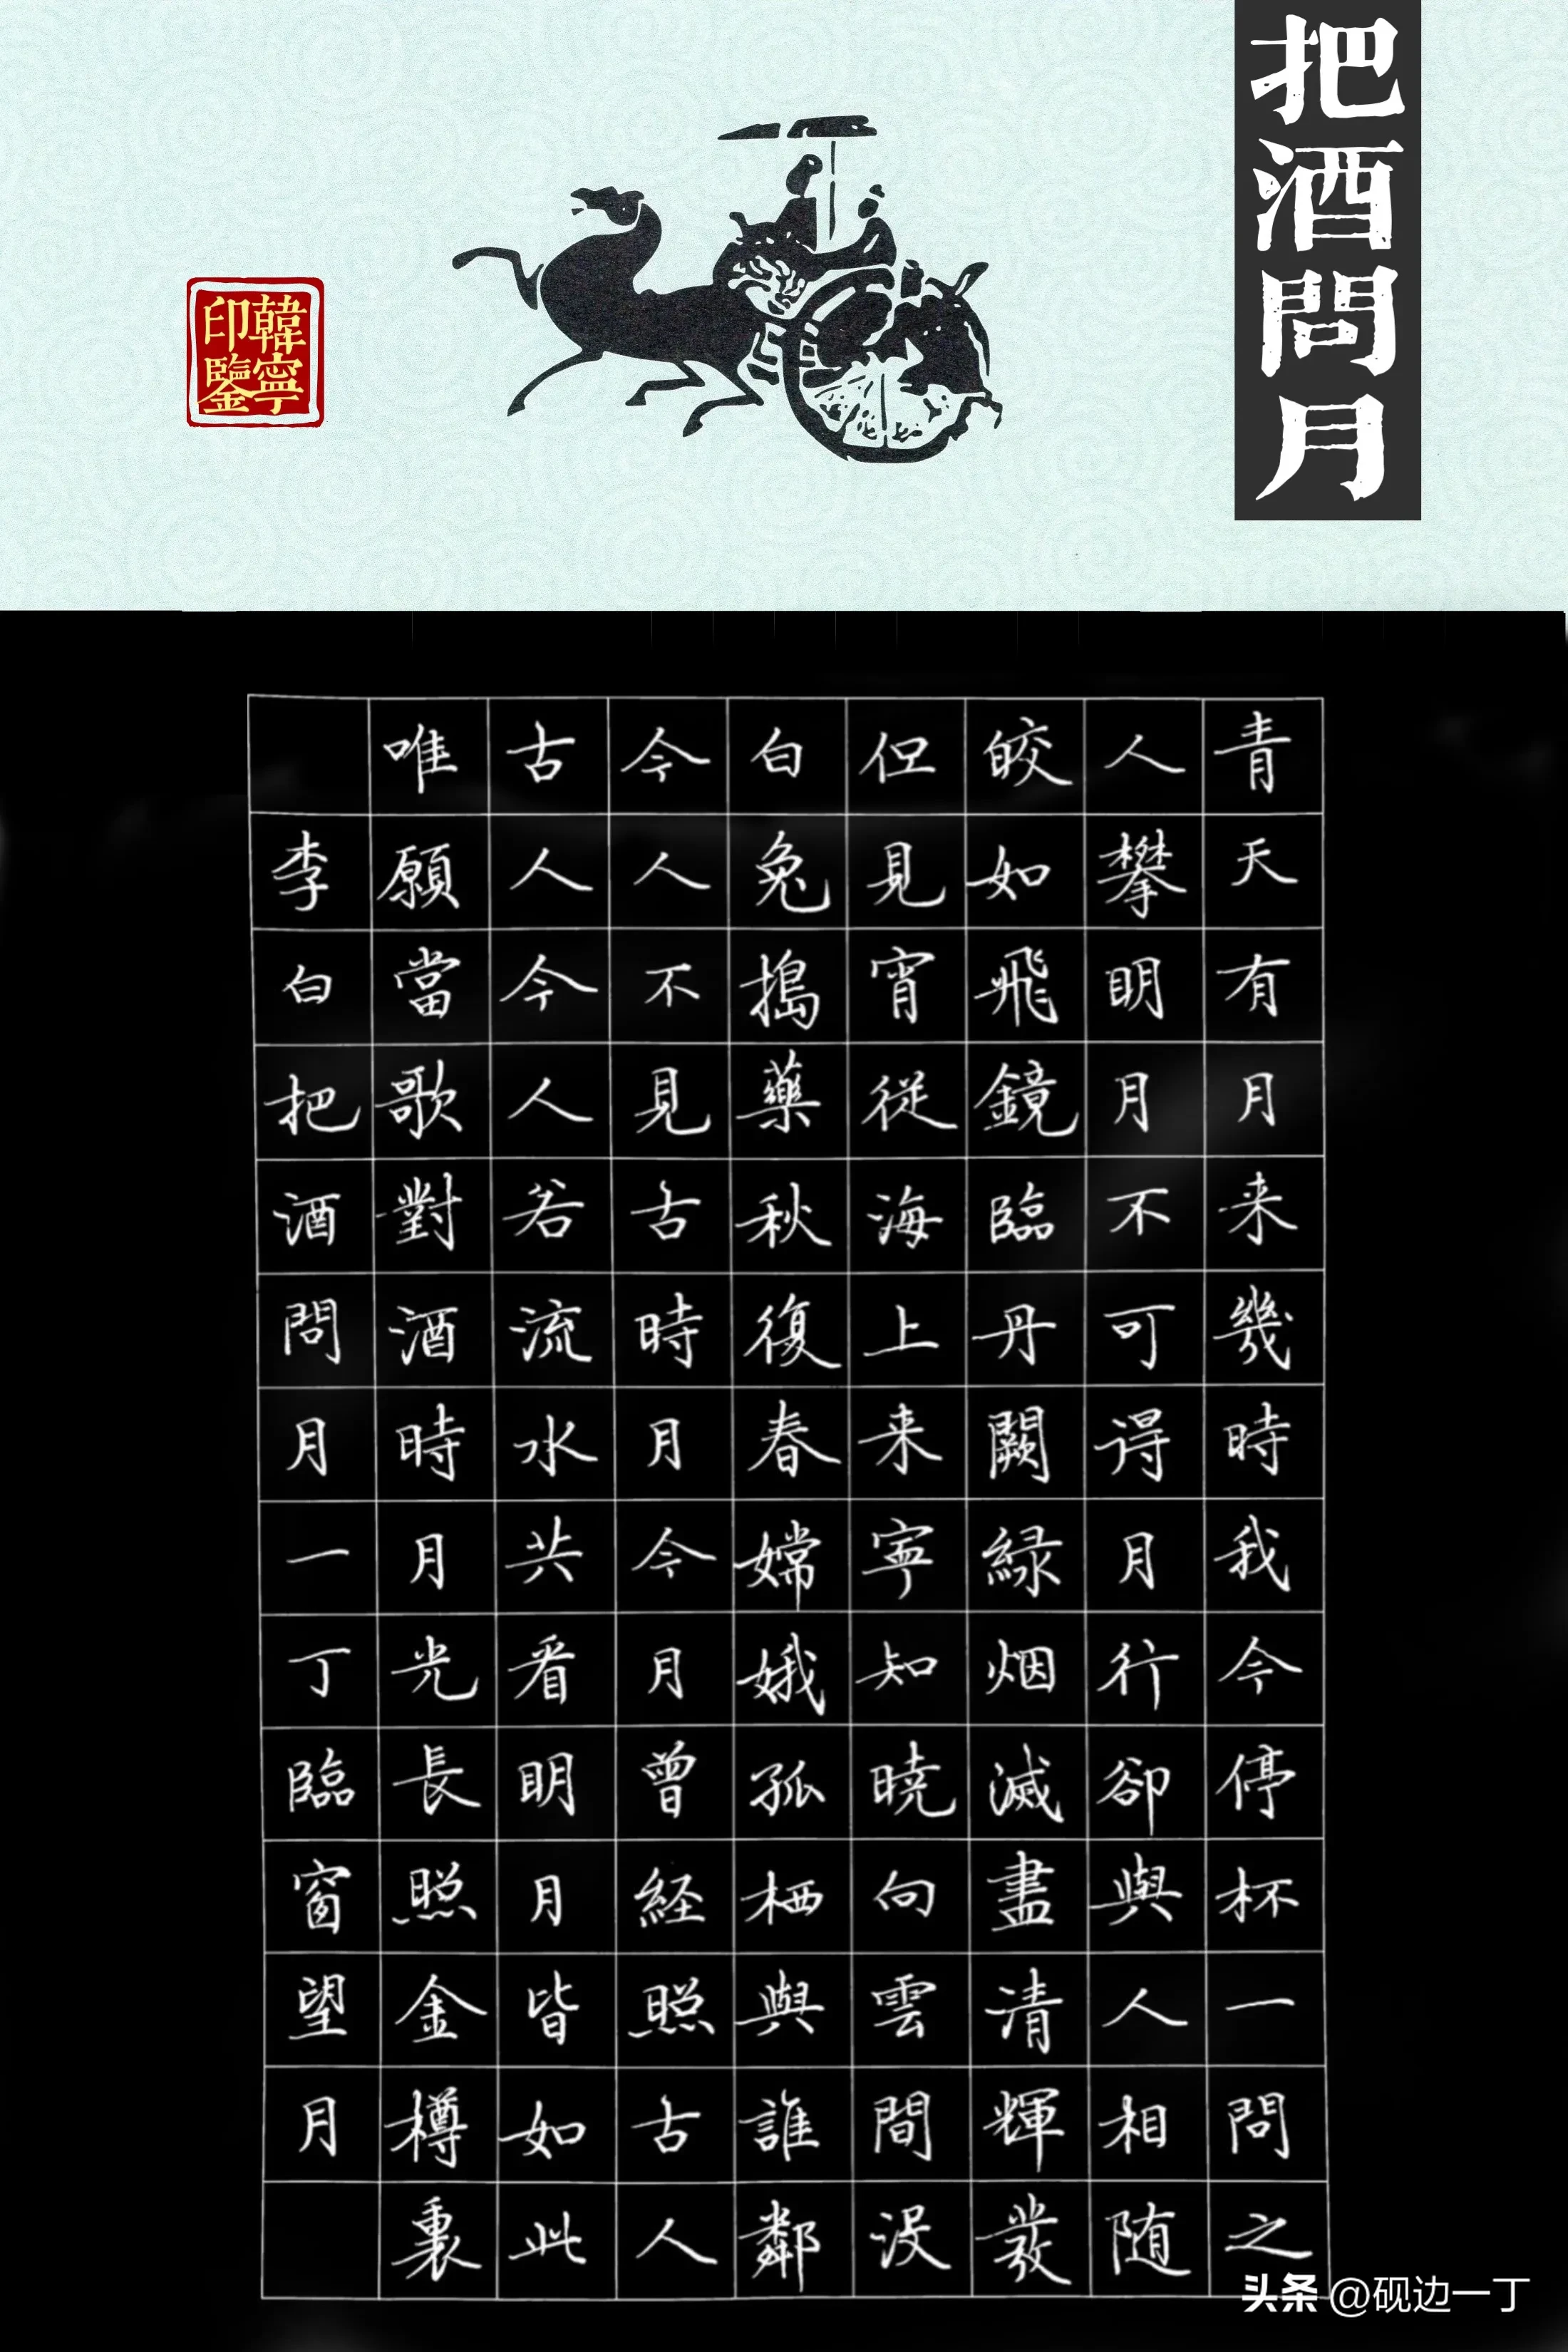 把酒問月
韓寧印鑒
青天有月来幾時我今停杯一問之
人攀明月不可得月行卻與人相随
皎如飛鏡臨丹闕緑烟滅盡清輝發
但見宵従海上来寧知暁向雲間没
白兔搗藥秋復春嫦娥孤栖與誰鄰
今人不見古時月今月曾経照古人
古人今人若流水共看明月皆如此
唯願當歌對酒時月光長照金樽裏
李白把酒問月一丁臨窗望月
头条 @砚边一丁